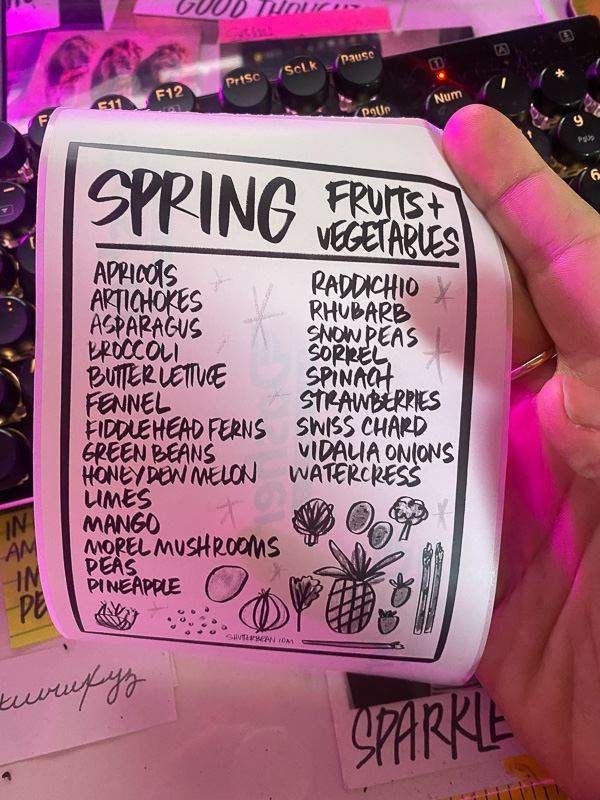 GOOD THOUGHT
PrtSc
ScLk
Pause
F11
F12
PgUp
Num
1
A
/
*
9
PgUp
SPRING
FRUITS +
VEGETABLES
APRICOTS
ARTICHOKES
ASPARAGUS
BROCCOLI
BUTTER LETTUCE
FENNEL
FIDDLEHEAD FERNS
GREEN BEANS
HONEYDEW MELON
LIMES
MANGO
MOREL MUSHROOMS
PEAS
PINEAPPLE
RADDICHIO
RHUBARB
SNOW PEAS
SORREL
SPINACH
STRAWBERRIES
SWISS CHARD
VIDALIA ONIONS
WATERCRESS
SHUTTERBEAN.COM
IN
AN
IN
PE
SPARKLE